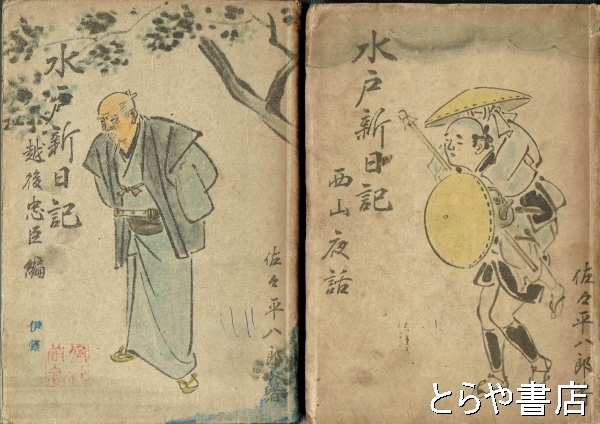 水戸新日記
越後忠臣編
佐々平八郎著
伊藤
水戸新日記
西山夜話
佐々平八郎
とらや書店